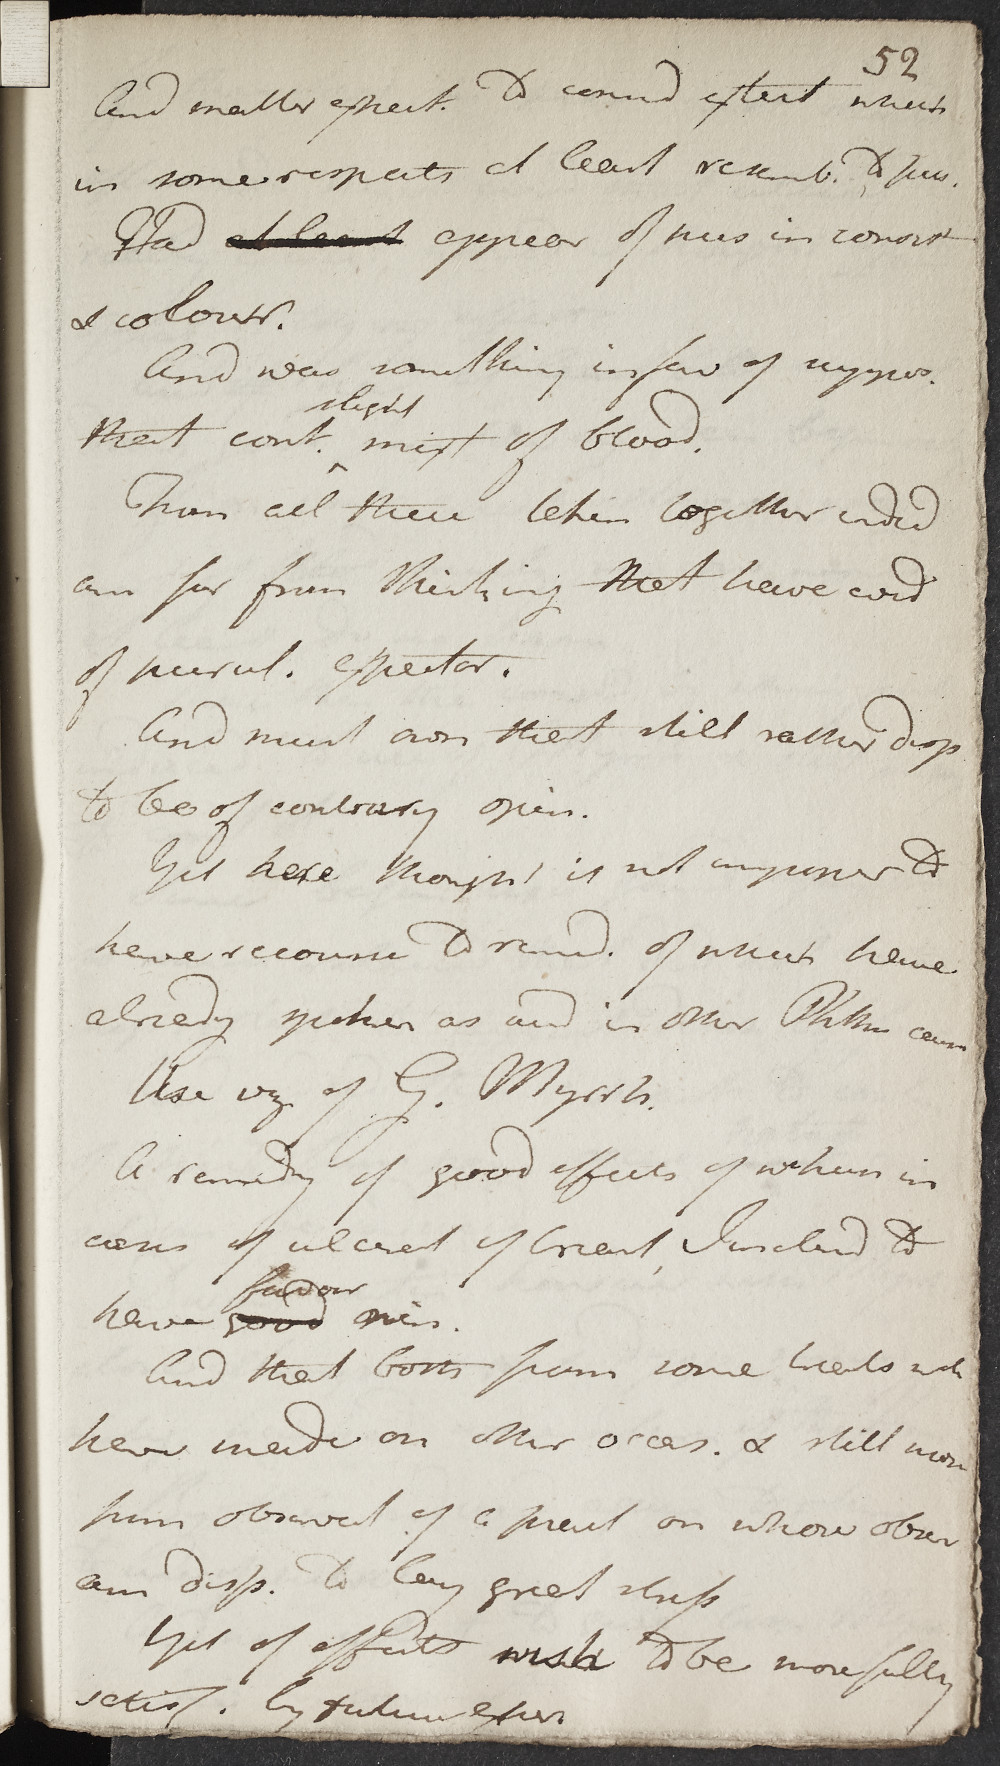 52
And matter expect. To consid extent which
in some respects at least resemb. to pus.
Had at least appear of pus in consist
& colour.
And was something in fav of suppos.
slight
that cont. mixt of blood.
From all these taken together indeed
am far from thinking that have evid
of purul. expector.
And must own that still rather disp
to be of contrary opin.
Yet here thought it not improper to
have recourse to remed. of which have
already spoken as used in other Phthis cases
Use viz of G. Myrrh.
A remedy of good effects of which in
cases of ulcerat of breast, Inclined to
favour
have good opin.
And that both from some trials wch
have made on other occas. & still more
from observat of a pract on whose obser
am disp. to lay great stress
Yet of effects wish to be more fully
satisf. by future exper.